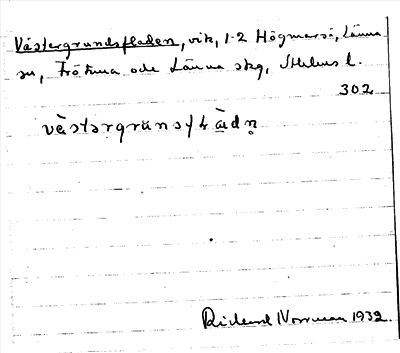 Västergrundsfladen, vik, 1-2 Högmarsö, Länna
sn, Frötuna och Länna skg, Sthlms l.
302
västərgrunsfladn̥
Rickard Norrman 1932.